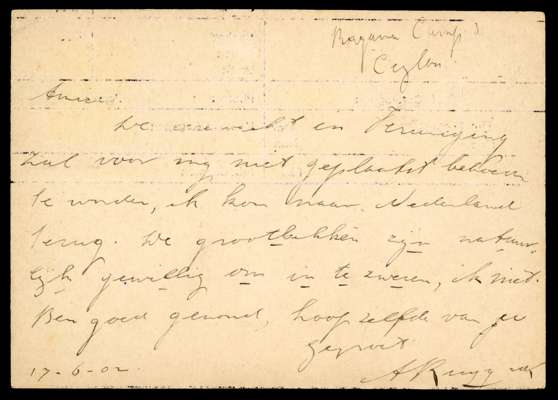 Ragama Camp
Ceylon
Amice.
De en Vereeniging
zal voor mij niet geplaatst behoeven
te worden, ik kom naar Nederland
terug. De grootbekken zijn natuur-
lijk gewillig om in te zweren, ik niet.
Ben goed gezond, hoop zelfde van je
gegroet
17-6-02.